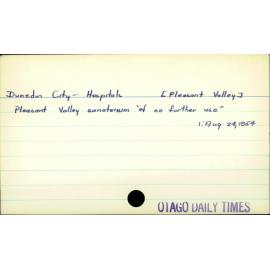 Dunedin City - Hospitals [Pleasant Valley]
Pleasant Valley sanatorium "of no further use"
1: Aug 24, 1954
OTAGO DAILY TIMES